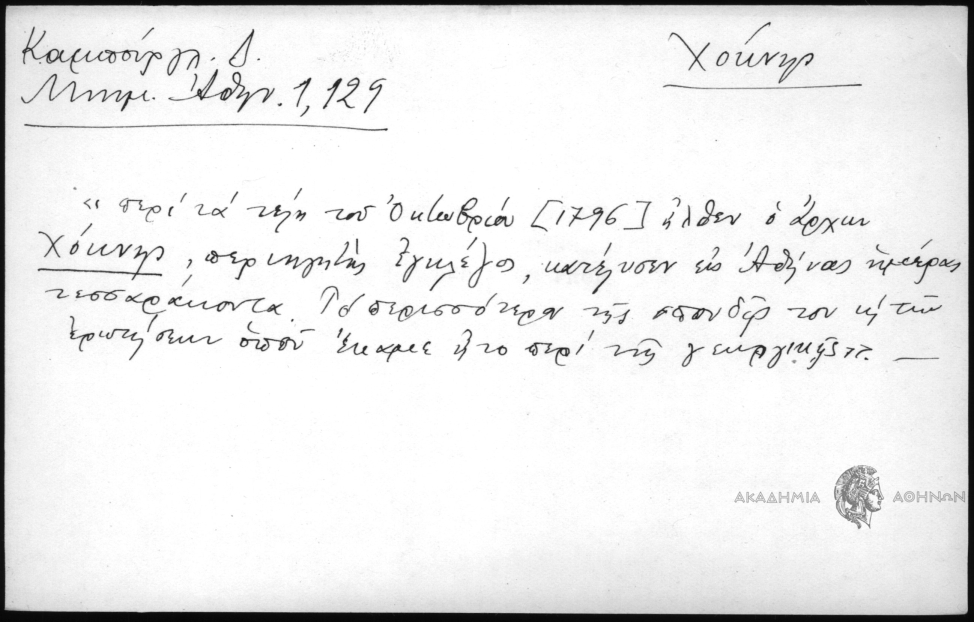 Καμπούργλ. Δ.
Μνημ. Ἀθην. 1, 129
Χόκνηρ
« περὶ τὰ τέλη τοῦ Ὀκτωβρίου [1796] ἦλθεν ὁ ἄρχων
Χόκνηρ, περιηγητὴς Ἐγκλέζος, κατέλυσεν εἰς Ἀθήνας ἡμέρας
τεσσαράκοντα. Τὸ περισσότερον τῆς σπουδῆς του κὶ τῶν
ἐρωτήσεων ὁποῦ ἔκαμε ἦτο περὶ τῆς γεωργικῆς». —
ΑΚΑΔΗΜΙΑ ΑΘΗΝΩΝ